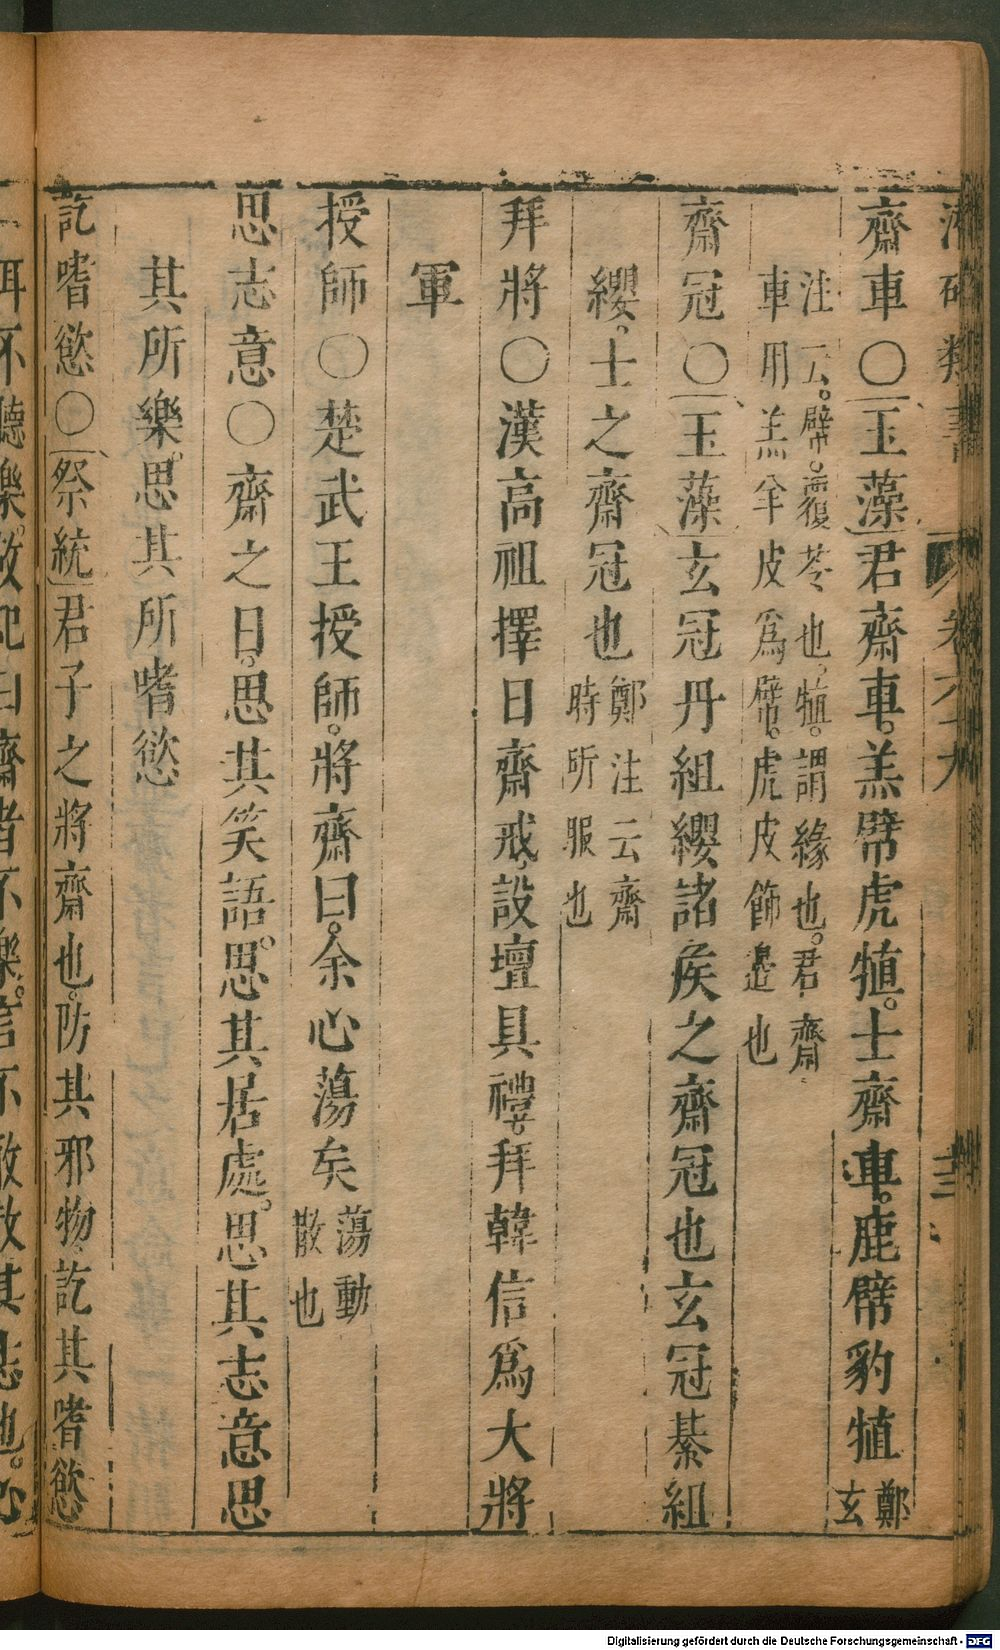 類書 卷六十
齋車〇玉藻君齋車。羔幦虎犆。士齋車。鹿幦豹犆鄭
玄
注云。幦。覆苓也。犆。謂緣也。君齋
車用羔羊皮爲幦。虎皮飾邊也
齋冠〇玉藻玄冠丹組纓諸矦之齋冠也玄冠綦組
纓。士之齋冠也鄭注云齋
時所服也
拜將〇漢高祖擇日齋戒。設壇具禮。拜韓信爲大將
軍
授師〇楚武王授師。將齋曰。余心蕩矣蕩動
散也
思志意〇齋之日。思其笑語。思其居處。思其志意思
其所樂。思其所嗜慾
訖嗜慾〇祭統君子之將齋也。防其邪物。訖其嗜慾
耳不聽樂。故記曰齋者不樂。言不敢散其志也。心
Digitalisierung gefördert durch die Deutsche Forschungsgemeinschaft - DFG